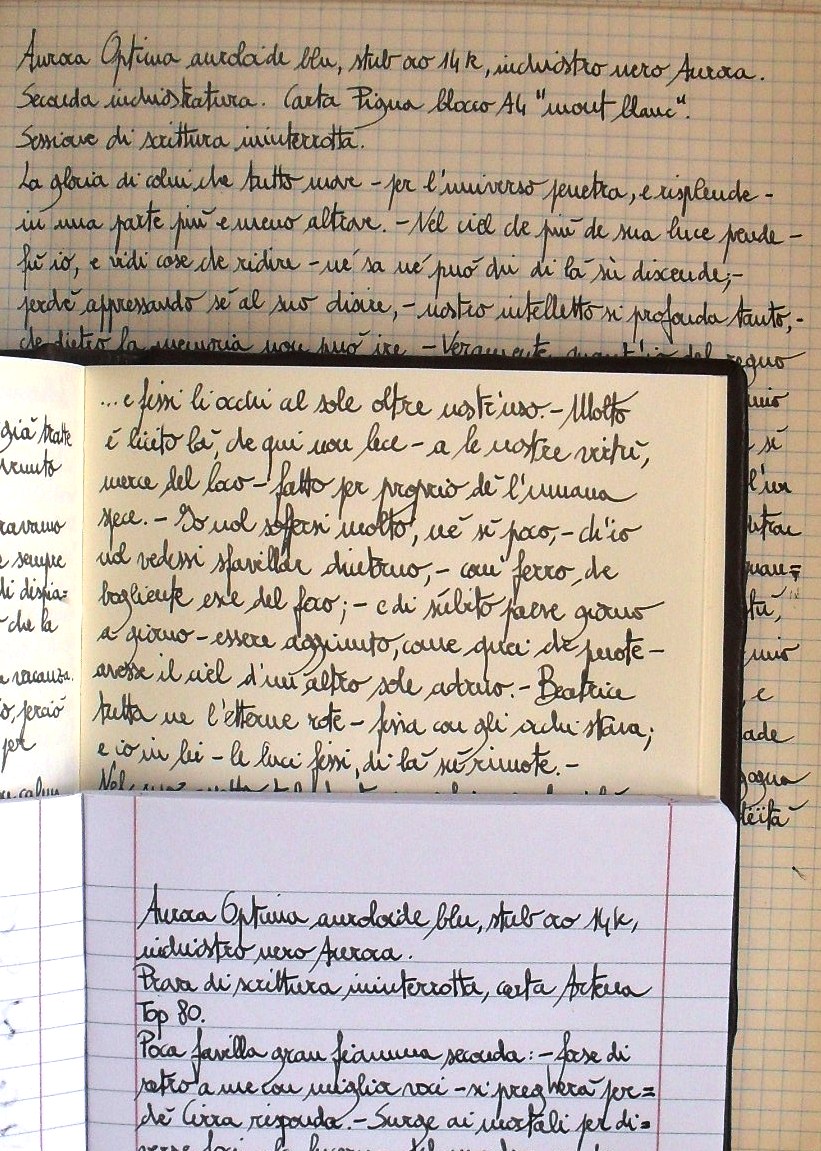 Aurora Optima auroloide blu, stub oro 14k, inchiostro nero Aurora.
Seconda inchiostratura. Carta Pigna blocco A4 "mont blanc".
Sessione di scrittura ininterrotta.
La gloria di colui che tutto move - per l'universo penetra, e risplende -
in una parte più e meno altrove. - Nel ciel che più de sua luce prende -
fu' io, e vidi cose che ridire - né sa né può chi di là sù discende; -
perché appressando sé al suo disire, - nostro intelletto si profonda tanto, -
che dietro la memoria non può ire. - Veramente quant'io del regno
già tratte
ravamo
e sempre
di dispia=
che la
vacanza.
perciò
per
... e fissi li occhi al sole oltre nostr'uso. - Molto
è licito là, che qui non lece - a le nostre virtù,
mercé del loco - fatto per proprio de l'umana
spece. - Io nol soffersi molto, né sì poco, - ch'io
nol vedessi sfavillar dintorno, - com' ferro che
bogliente esce del foco; - e di sùbito parve giorno
a giorno - essere aggiunto, come quei che puote -
avesse il ciel d'un altro sole adorno. - Beatrice
tutta ne l'etterne rote - fissa con gli occhi stava;
e io in lei - le luci fissi, di là sù rimote. -
sé
quan=
, e
Aurora Optima auroloide blu, stub oro 14k,
inchiostro nero Aurora.
Prova di scrittura ininterrotta, carta Artena
Top 80.
Poca favilla gran fiamma seconda: - forse di
retro a me con miglior voci - si pregherà per=
ché Cirra risponda. - Surge ai mortali per di=
verse foci - la lucerna del